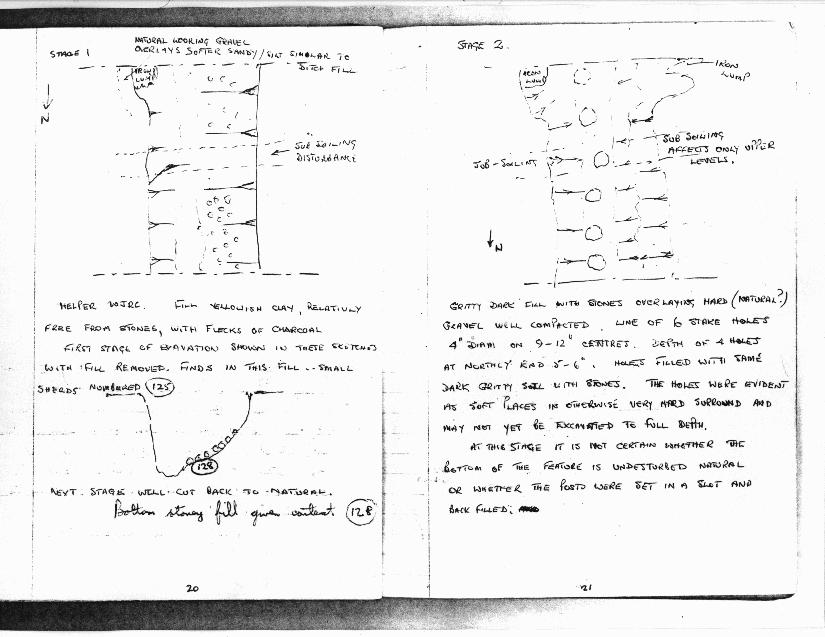 STAGE 1
NATURAL LOOKING GRAVEL
OVERLAYS SOFTER SANDY/SILT SIMILAR TO
DITCH FILL
IRON
LUMP
N
SUB SOILING
DISTURBANCE
HELPER WJRC. FILL YELLOWISH CLAY, RELATIVLY
FREE FROM STONES, WITH FLECKS OF CHARCOAL
FIRST STAGE OF EXAVATION SHOWN IN THESE SKETCHES
WITH FILL REMOVED. FINDS IN THIS FILL.. SMALL
SHERDS NUMBERED 125
128
NEXT STAGE WILL CUT BACK TO NATURAL.
Bottom stoney fill given context 128
20
STAGE 2.
IRON
LUMP
IRON
LUMP
SUB SOILING
AFFECTS ONLY UPPER
LEVELS.
SUB-SOILING
N
GRITTY DARK FILL WITH STONES OVERLAYING HARD (NATURAL?)
GRAVEL WELL COMPACTED. LINE OF 6 STAKE HOLES
4" DIAM ON 9-12" CENTRES. DEPTH OF 4 HOLES
AT NORTHLY END 5-6". HOLES FILLED WITH SAME
DARK GRITTY SOIL WITH STONES. THE HOLES WERE EVIDENT
AS SOFT PLACES IN OTHERWISE VERY HARD SURROUND AND
MAY NOT YET BE EXCAVATED TO FULL DEPTH.
AT THIS STAGE IT IS NOT CERTAIN WHETHER THE
BOTTOM OF THE FEATURE IS UNDESTURBED NATURAL
OR WHETHER THE POSTS WERE SET IN A SLOT AND
BACK FILLED.
21